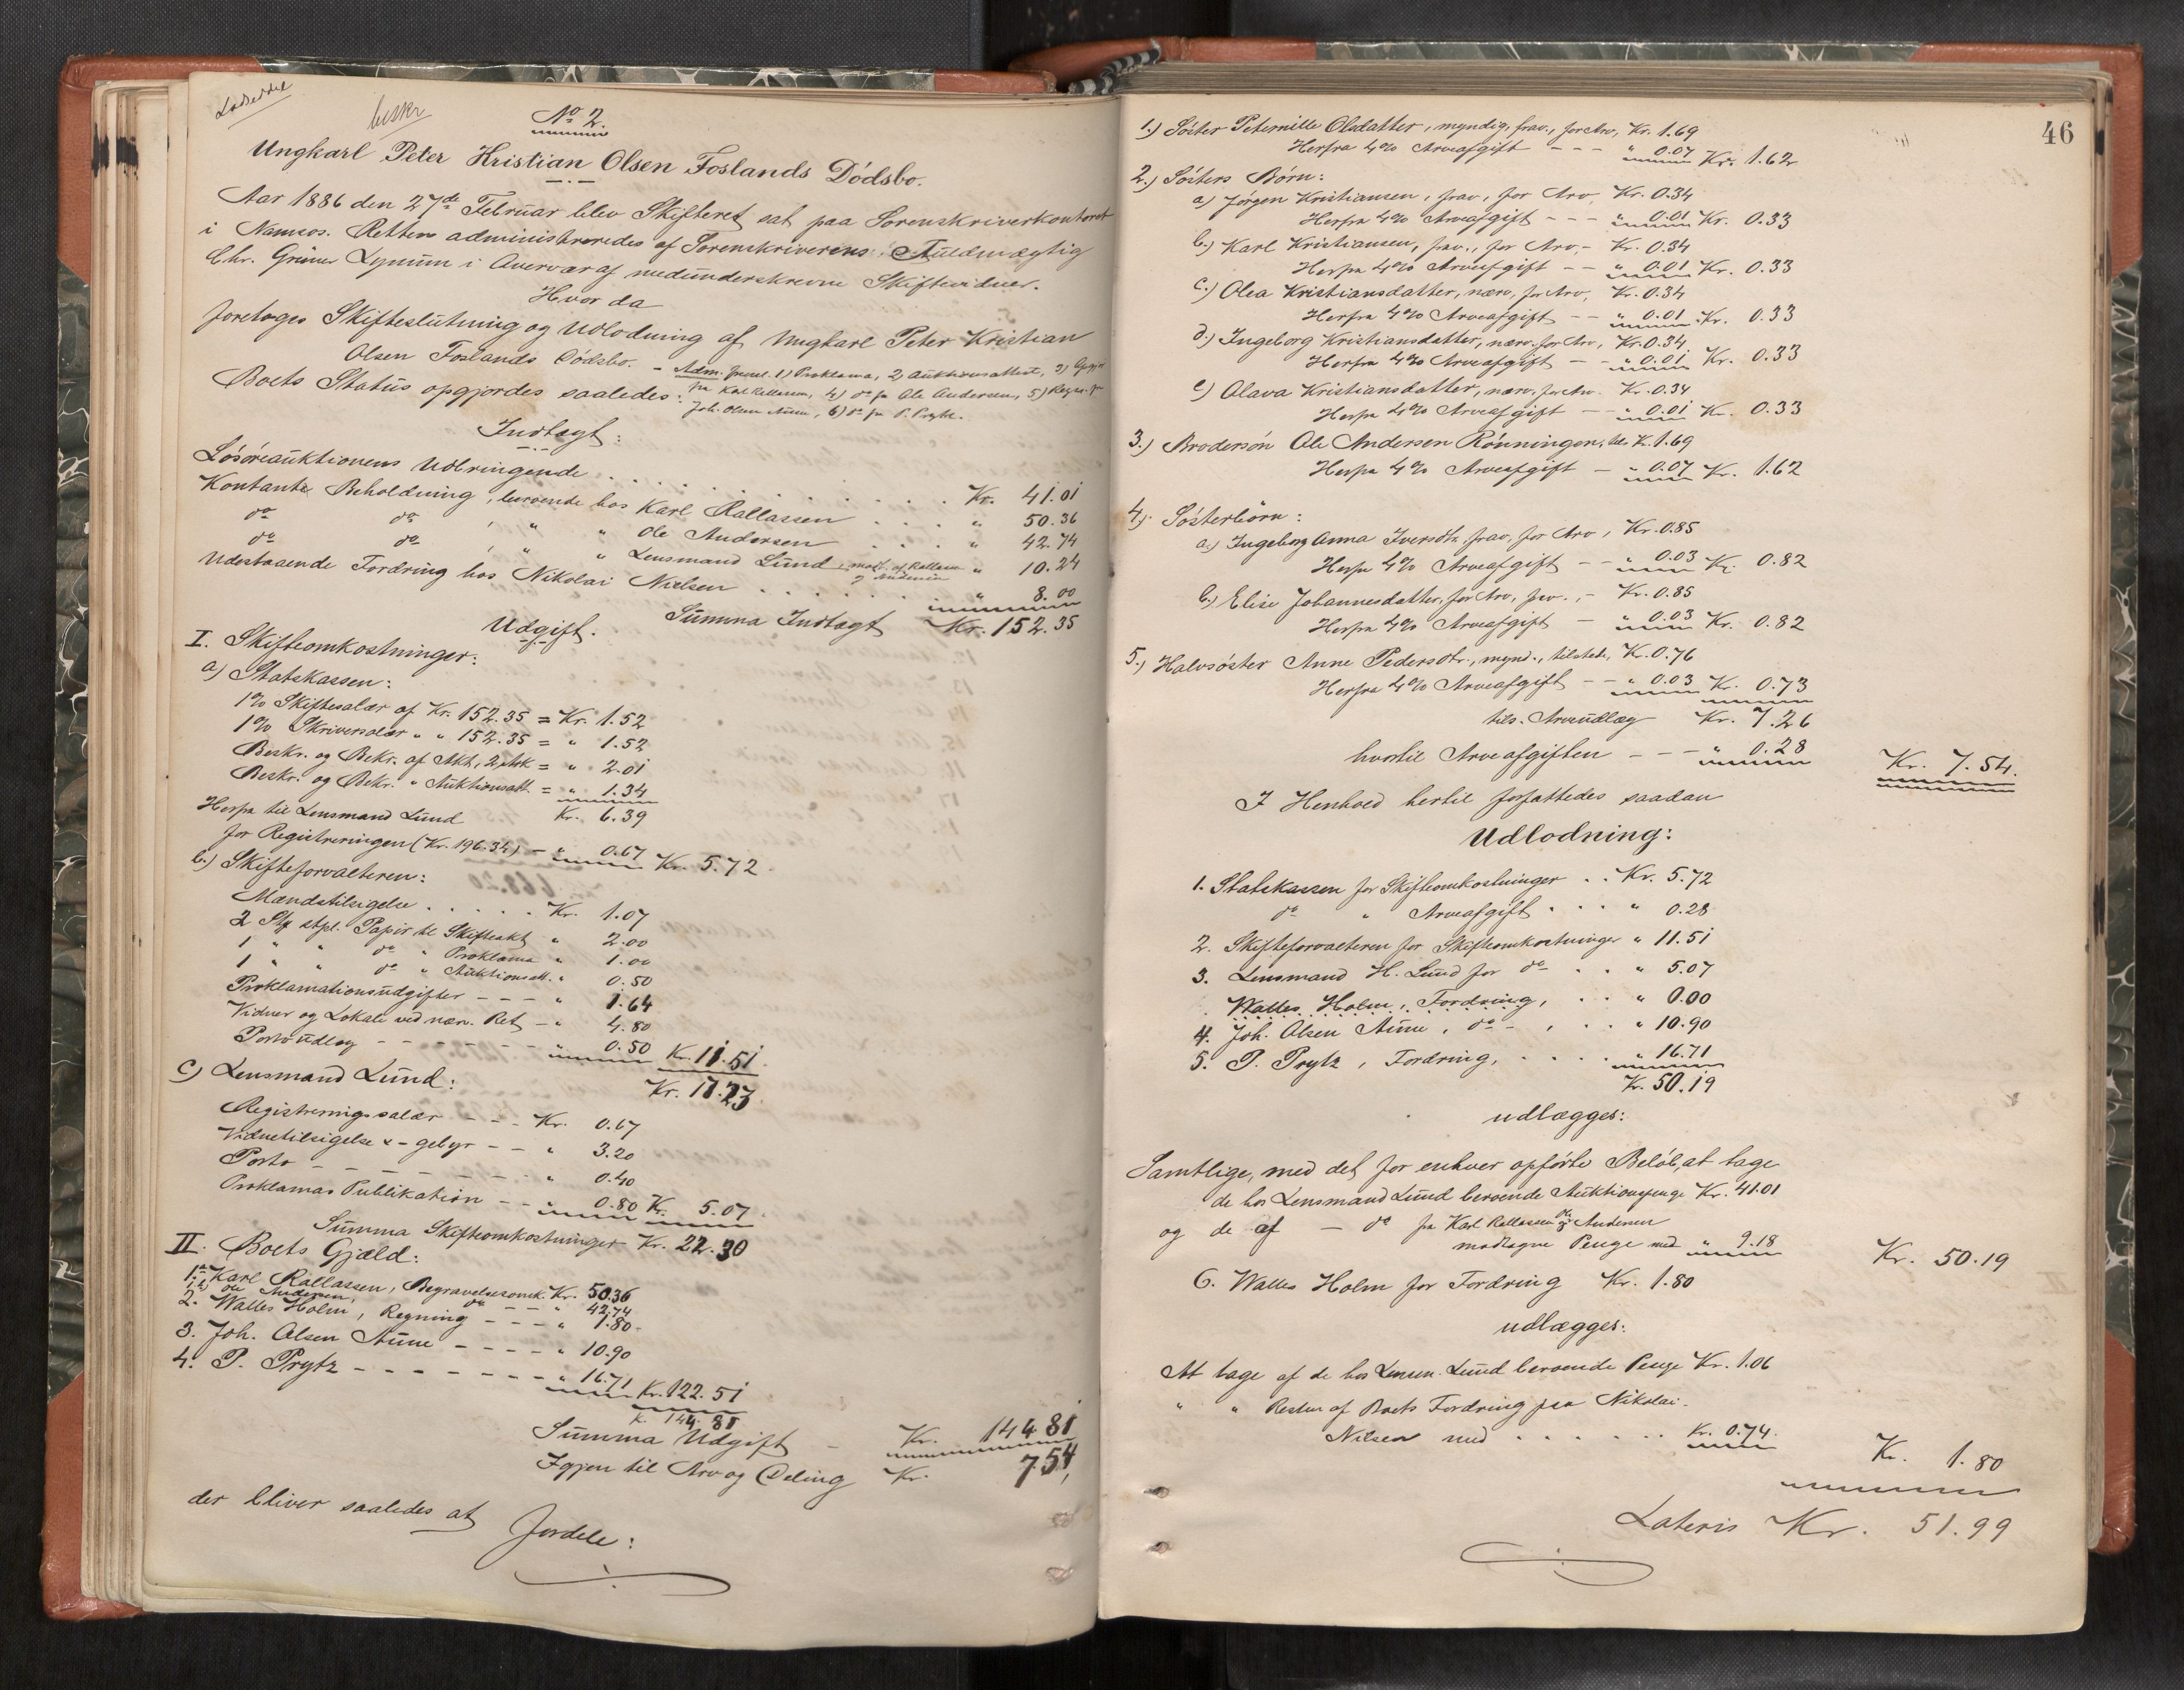 Ladseddel
beskr
No 2.
Ungkarl Peter Kristian Olsen Foslands Dödsbo.
Aar 1886 den 27de Februar blev Skifteret sat paa Sorenskriverkontoret
i Namsos. Retten administreredes af Sorenskriverens Fuldmægtig
Chr. Grüner Lynum i Overvær af medunderskrevne Skiftevidner.
Hvor da
foretoges Skifteslutning og Udlodning af Ungkarl Peter Kristian
Olsen Foslands Dödsbo. - Adm. freml. 1) Proklama, 2) Auktionsattest, 3)
fra Karl Rallassen, 4) do fra Ole Andersen, 5) Regn. fra
Joh. Olsen Aune, 6) do fra P. Prytz.
Boets Status opgjordes saaledes:
Indtægt:
Lösöreauktionens Udbringende . . . . . . . Kr. 41.01
Kontante Beholdning, beroende hos Karl Rallassen . . . . " 50.36
do do , " " Ole Andersen . . . . " 42.74
do do , " " Lensmand Lund, modt. af Rallassen og Andersen " 10.24
Udestaaende Fordring hos Nikolai Nielsen . . . . . . " 8.00
Summa Indtægt Kr. 152.35
Udgift.
I. Skifteomkostninger:
a) Statskassen:
1% Skiftesalær af Kr. 152.35 = Kr. 1.52
1% Skriversalær " " 152.35 = " 1.52
Beskr. og Bekr. af Akt, 2 Ark = " 2.01
Beskr. og Bekr. " Auktionsatt. = " 1.34
Kr. 6.39
Herfra til Lensmand Lund
for Registreringen (Kr. 196.34) - " 0.67 Kr. 5.72
b.) Skifteforvalteren:
Mændstilsigelse . . . . . Kr. 1.07
2 Stk stpl. Papir til Skifteakt " 2.00
1 " " do " Proklama " 1.00
1 " " do " Auktionsatt. " 0.50
Proklamationsudgifter - - - " 1.64
Vidner og Lokale ved nærv. Ret - " 4.80
Portoudlæg - - - - - - " 0.50 Kr. 11.51
Kr. 17.23
c) Lensmand Lund:
Registreringssalær - - - Kr. 0.67
Vidnetilsigelse & - gebyr - - " 3.20
Porto - - - - - - " 0.40
Proklamas Publikation - - " 0.80 Kr. 5.07
Summa Skifteomkostninger Kr. 22.30
II. Boets Gjæld:
1. a) Karl Rallassen, Begravelsesomk. Kr. 50.36
b) Ole Andersen, do - - " 42.74
2. Walles Holm, Regning - - - " 1.80
3. Joh. Olsen Aune - - - - " 10.90
4. P. Prytz - - - - - - - " 16.71 Kr. 122.51
Kr. 144.81
Summa Udgift - Kr. 144.81
Igjen til Arv og Deling Kr. 7.54,
der bliver saaledes at
fordele:
46
1.) Söster Peternille Olsdatter, myndig, frav., for Arv, Kr. 1.69
Herfra 4% Arveafgift - - - " 0.07 Kr. 1.62
2.) Sösters Börn:
a) Jörgen Kristiansen, frav., for Arv, Kr. 0.34
Herfra 4% Arveafgift - - - " 0.01 Kr. 0.33
b.) Karl Kristiansen, frav., for Arv, - Kr. 0.34
Herfra 4% Arveafgift - - " 0.01 Kr. 0.33
c.) Olea Kristiansdatter, nærv. for Arv, Kr. 0.34
Herfra 4% Arveafgift - - " 0.01 Kr. 0.33
d.) Ingeborg Kristiansdatter, nærv. for Arv, Kr. 0.34
Herfra 4% Arveafgift - - " 0.01 Kr. 0.33
e) Olava Kristiansdatter, nærv. for Arv. Kr. 0.34
Herfra 4% Arveafgift - - " 0.01 Kr. 0.33
3.) Brodersön Ole Andersen Rönningen, Kr. 1.69
Herfra 4% Arveafgift - " 0.07 Kr. 1.62
4). Sösterbörn:
a.) Ingeborg Anna Iversdtr. frav. for Arv, Kr. 0.85
Herfra 4% Arveafgift - - " 0.03 Kr. 0.82
b.) Elise Johannesdatter, for Arv, frav., - Kr. 0.85
Herfra 4% Arveafgift - " 0.03 Kr. 0.82
5.) Halvsöster Anne Pedersdtr., mynd., tilstede, Kr. 0.76
Herfra 4% Arveafgift - - " 0.03 Kr. 0.73
tils. Arveudlæg Kr. 7.26
hvortil Arveafgiften - - - " 0.28 Kr. 7.54.
I Henhold hertil forfattedes saadan
Udlodning:
1. Statskassen for Skifteomkostninger . . Kr. 5.72
do " Arveafgift . . . " 0.28
2. Skifteforvalteren for Skifteomkostninger " 11.51
3. Lensmand H. Lund for do . . " 5.07
Walles Holm, Fordring, . . " 0.00
4. Joh. Olsen Aune, do - , . . " 10.90
5. P. Prytz, Fordring, . . . . " 16.71
Kr. 50.19
udlægges:
Samtlige, med det for enhver opförte Belöb, at tage
de hos Lensmand Lund beroende Auktionspenge Kr. 41.01
og de af - do fra Karl Rallassen og Ole Andersen
modtagne Penge med " 9.18 Kr. 50.19
6. Walles Holm for Fordring Kr. 1.80
udlægges:
At tage af de hos Lensm. Lund beroende Penge Kr. 1.06
" " Resten af Boets Fordring paa Nikolai
Nilsen med . . . . . . Kr. 0.74 Kr. 1.80
Lateris Kr. 51.99